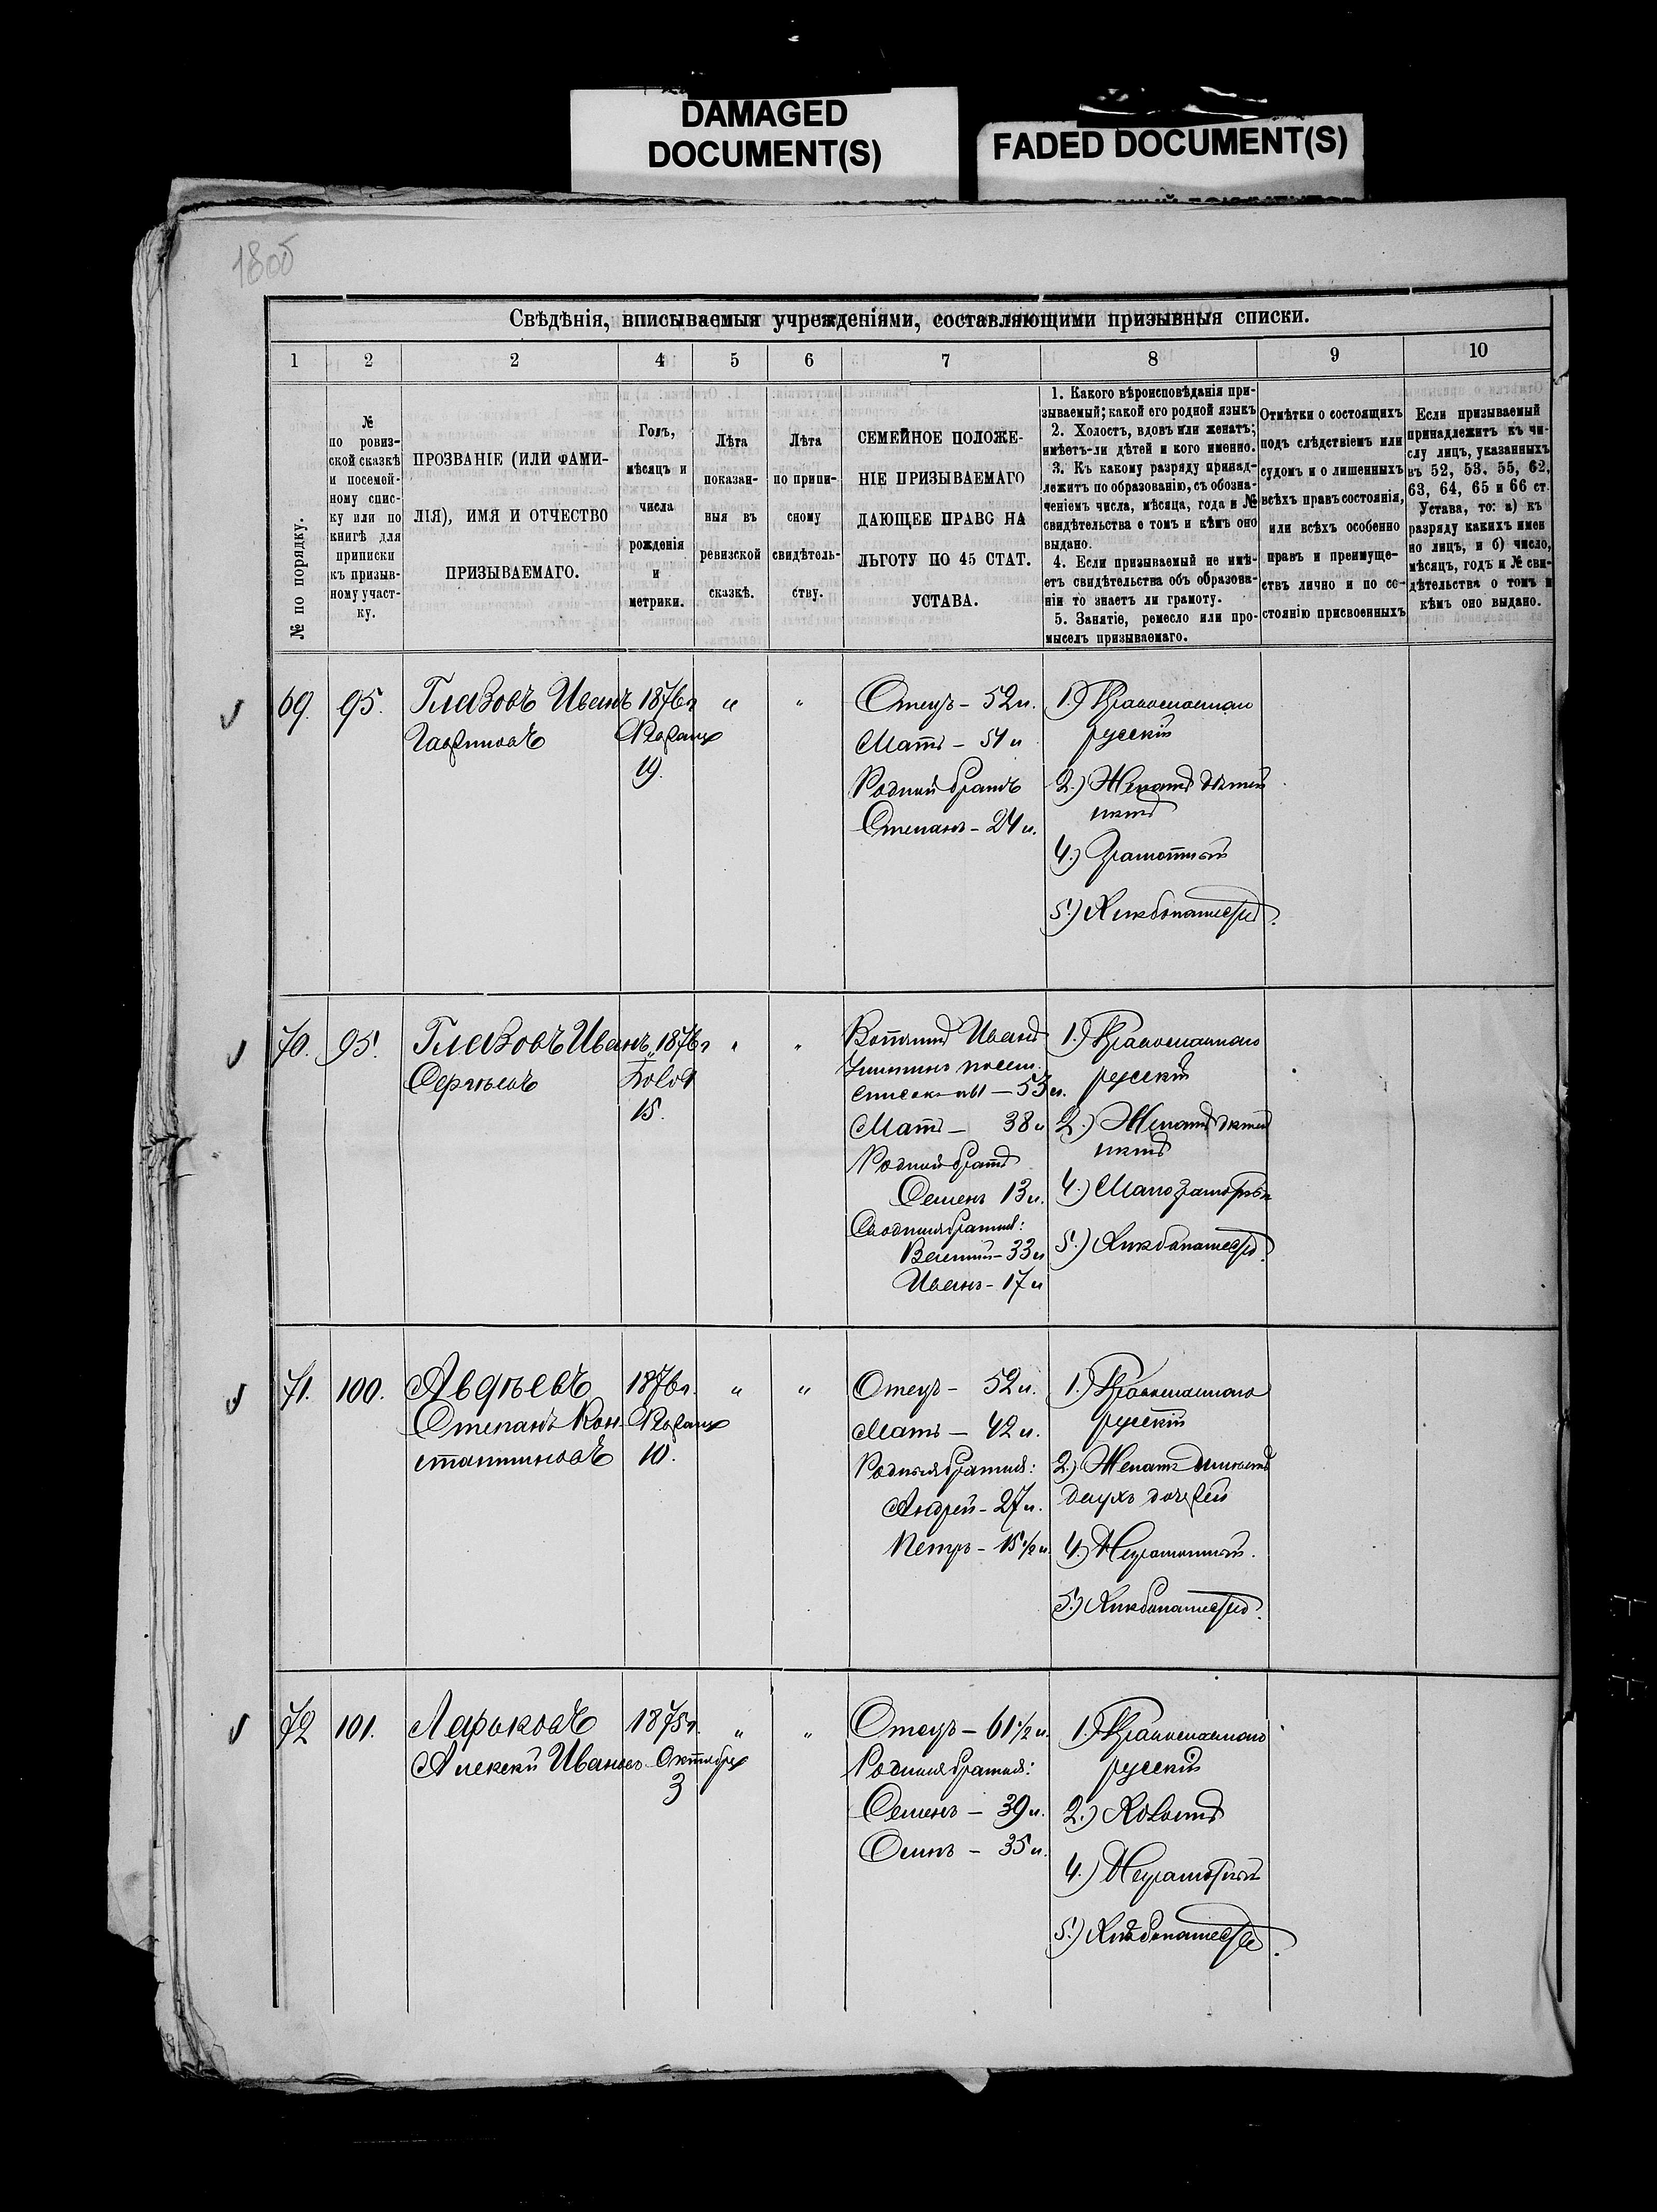 DAMAGED
DOCUMENT(S)
FADED DOCUMENT(S)
1805
Свѣдѣнія, вписываемыя учрежденіями, составляющими призывныя списки.
1 2 2 4 5 6 7 8 9 10
№ по порядку.
№
по ровиз-
ской сказкѣ
и посемей-
ному спис-
ку или по
книгѣ для
приписки
къ призыв-
ному участ-
ку.
ПРОЗВАНІЕ (ИЛИ ФАМИ-
ЛІЯ), ИМЯ И ОТЧЕСТВО
ПРИЗЫВАЕМАГО.
Годъ,
мѣсяцъ и
числа
рожденія
и
метрики.
Лѣта
показан-
ныя въ
ревизской
сказкѣ.
Лѣта
по припи-
сному
свидѣтель-
ству.
СЕМЕЙНОЕ ПОЛОЖЕ-
НІЕ ПРИЗЫВАЕМАГО
ДАЮЩЕЕ ПРАВО НА
ЛЬГОТУ ПО 45 СТАТ.
УСТАВА.
1. Какого вѣроисповѣданія при-
зываемый; какой его родной языкъ
2. Холостъ, вдовъ или женатъ;
имѣетъ-ли дѣтей и кого именно.
3. Къ какому разряду принад-
лежитъ по образованію, съ обозна-
ченіемъ числа, мѣсяца, года и №
свидѣтельства о томъ и кѣмъ оно
выдано.
4. Если призываемый не имѣ-
етъ свидѣтельства объ образова-
ніи то знаетъ ли грамоту.
5. Занятіе, ремесло или про-
мыселъ призываемаго.
Отмѣтки о состоящихъ
подъ слѣдствіемъ или
судомъ и о лишенныхъ
всѣхъ правъ состоянія,
или всѣхъ особенно
правъ и преимуще-
ствъ лично и по со-
стоянію присвоенныхъ
Если призываемый
принадлежитъ къ чи-
слу лицъ, указанныхъ
въ 52, 53, 55, 62,
63, 64, 65 и 66 ст.
Устава, то: а) къ
разряду какихъ имен
но лицъ, и б) число,
мѣсяцъ, годъ и № сви-
дѣтельства о томъ и
кѣмъ оно выдано.
69. 95. Глазовъ Иванъ 1876г
Января
19.
Отецъ - 52 л.
Мать - 51 л
Родной братъ
Степанъ - 24 л.
1.) Православнаго
русскій
2.) Женатъ дѣтей
нѣтъ
4.) Грамотный
5.) Хлѣбопашество.
70. 95. Глазовъ Иванъ 1876г
Сергѣевъ
15.
Вотчимъ Иванъ
53 л.
Мать - 38 л
Родной братъ
Семенъ 13 л.
Сводныя братья:
Василій - 33 л
Иванъ - 17 л
1.) Православнаго
русскій
2.) Женатъ дѣтей
нѣтъ
4.) Малограмотный
5.) Хлѣбопашество.
71. 100. Авдѣевъ 1876г.
Степанъ Кон- Января
стантиновъ 10.
Отецъ - 52 л.
Мать - 42 л.
Родныя братья:
Андрей - 27 л.
Петръ - 15 1/2 л.
1.) Православнаго
русскій
2.) Женатъ имѣетъ
двухъ дочерей
4.) Неграмотный.
5.) Хлѣбопашество.
72 101. Ларьковъ 1875г.
Алексѣй Ивановъ Октября
3
Отецъ - 61 1/2 л.
Родныя братья:
Семенъ - 39 л.
Осипъ - 35 л.
1.) Православнаго
русскій
2.) Холостъ
4.) Неграмотный
5.) Хлѣбопашество.